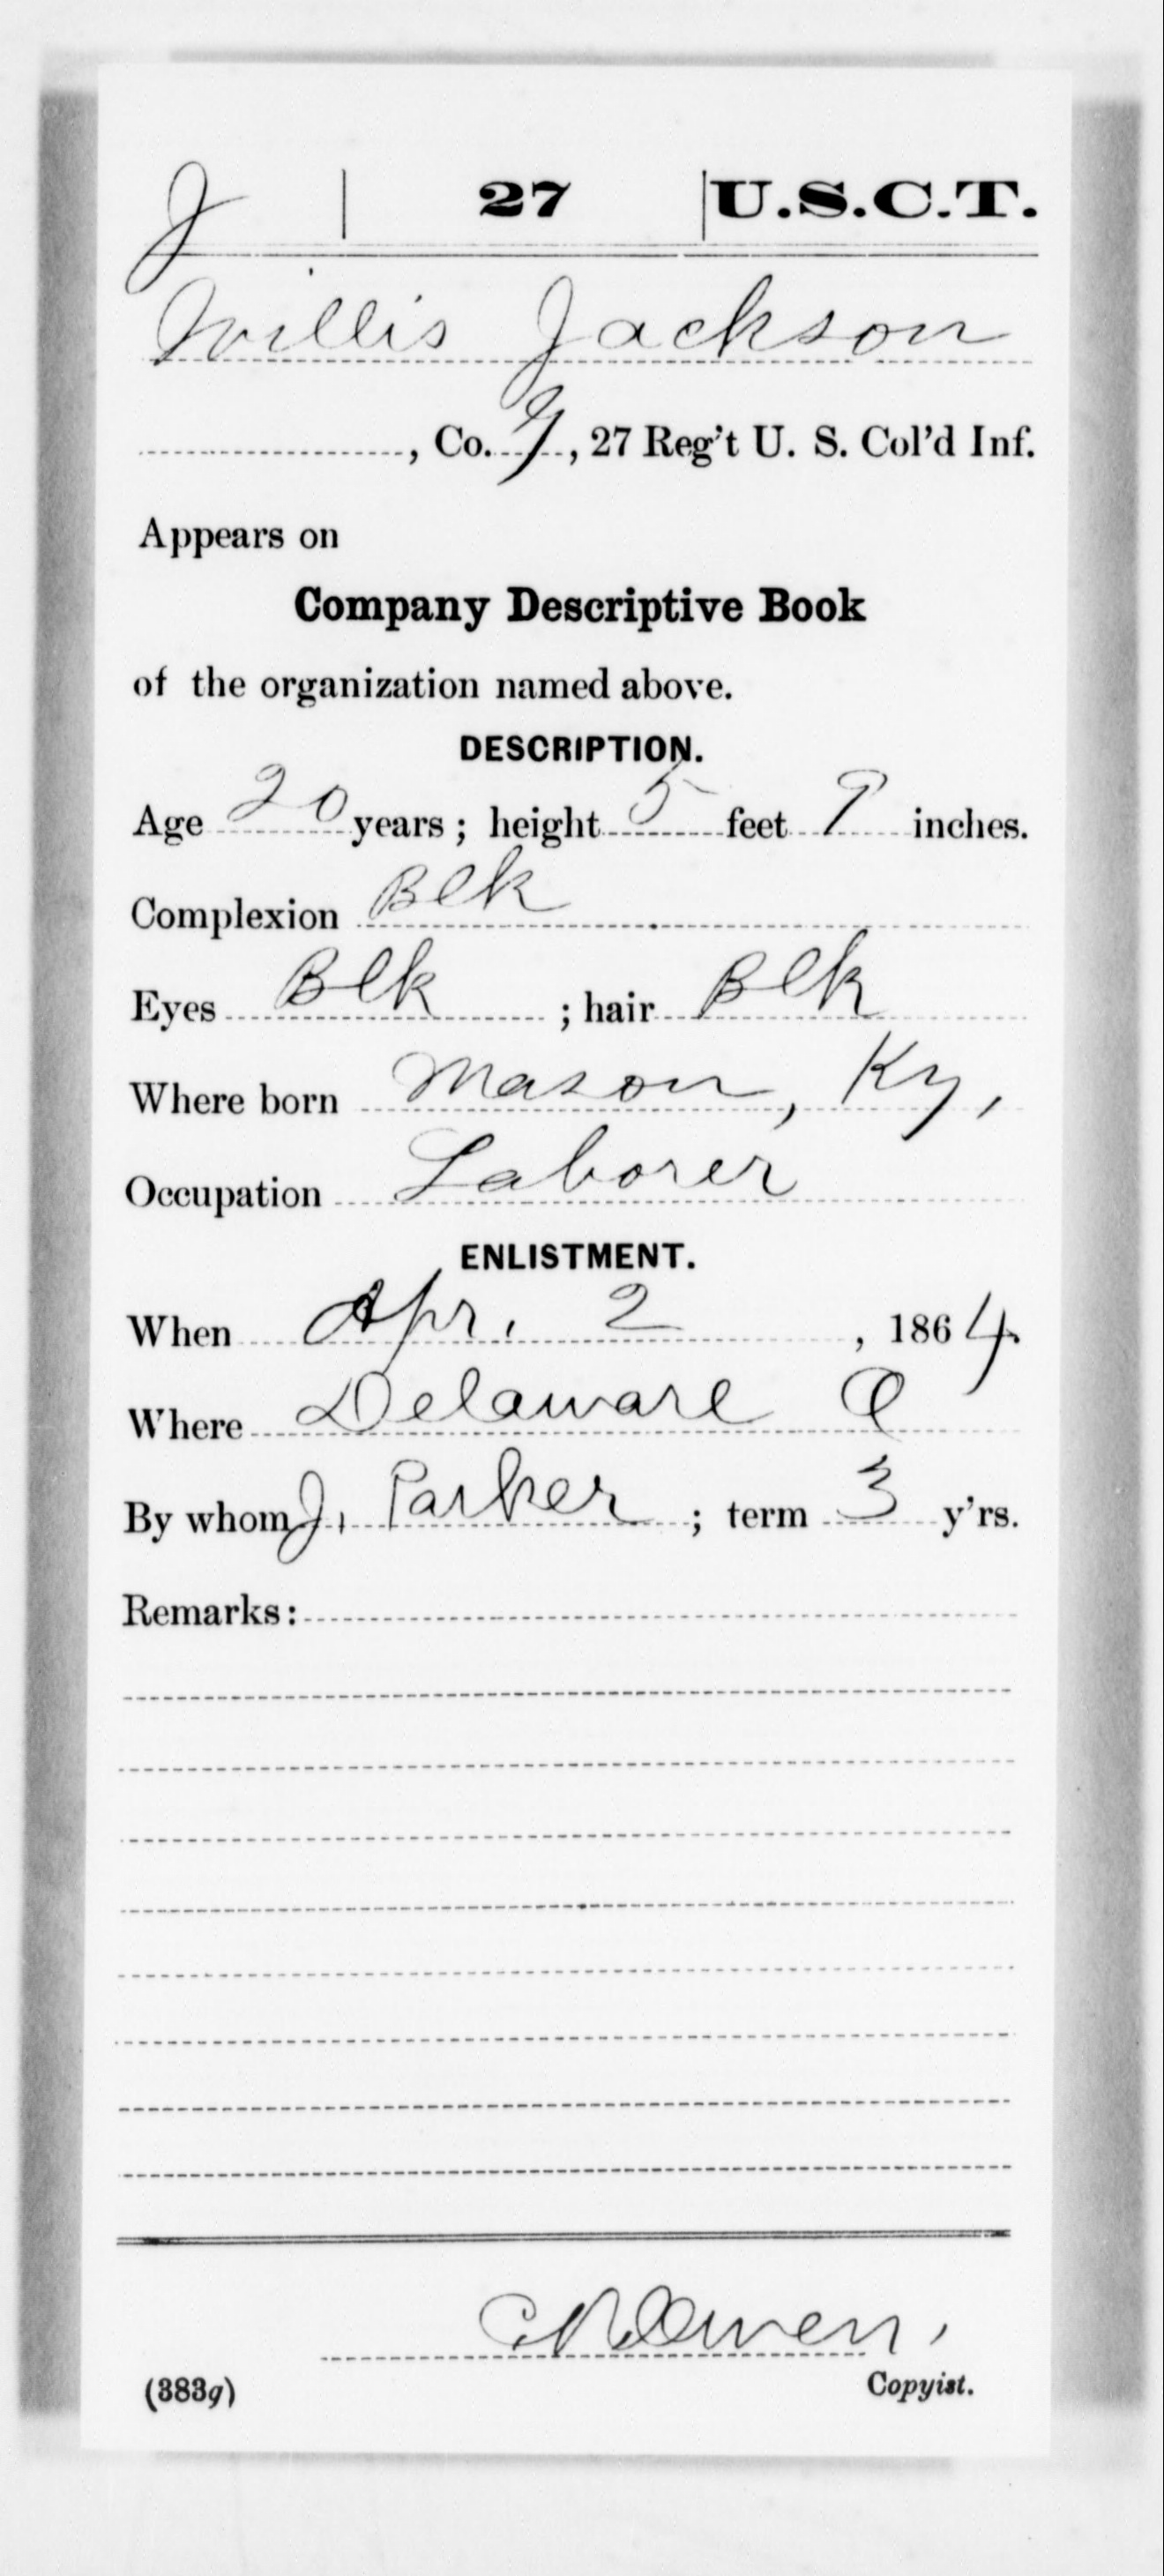 J | 27 | U.S.C.T.
Willis Jackson
, Co. , 27 Reg't U. S. Col'd Inf.
Appears on
Company Descriptive Book
of the organization named above.
DESCRIPTION.
Age 20 years; height 5 feet 9 inches.
Complexion Blk
Eyes Blk ; hair Blk
Where born Mason, Ky,
Occupation Laborer
ENLISTMENT.
When Apr. 2, 1864.
Where Delaware O
By whom J. Parker; term 3 y'rs.
Remarks:
Owen,
(383g) Copyist.